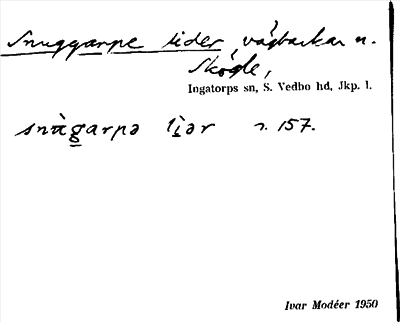 Snuggarpe lider, vägbackar n.
Skógle,
Ingatorps sn, S. Vedbo hd, Jkp. l.
snàgarpə lìər r. 157.
Ivar Modéer 1950